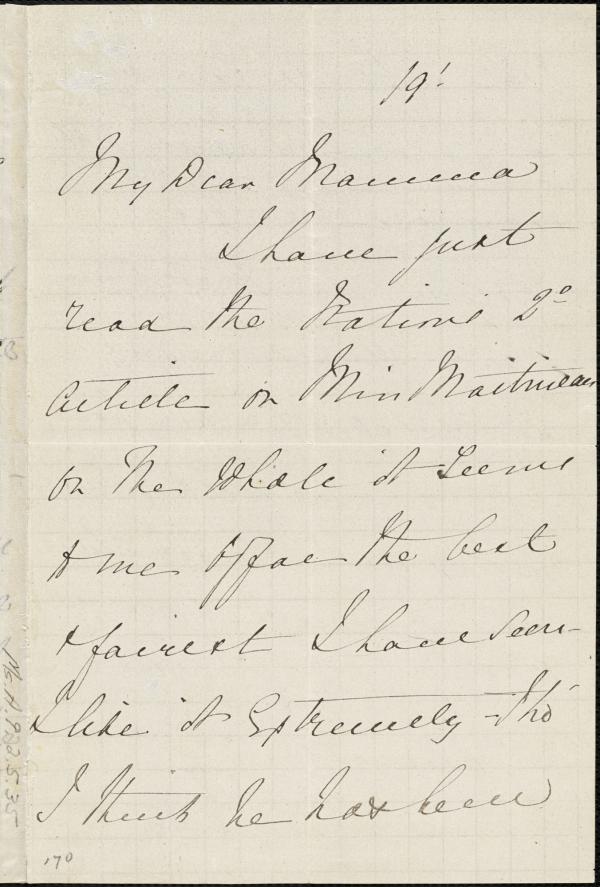 19'.
My Dear Mamma
I have just
read the Nation's 2°
Article on Miss Martineau
on the whole it seems
to me by far the best
& fairest I have seen -
I like it Extremely - tho'
I think he has been
170
Ms.A.9.2.5.35